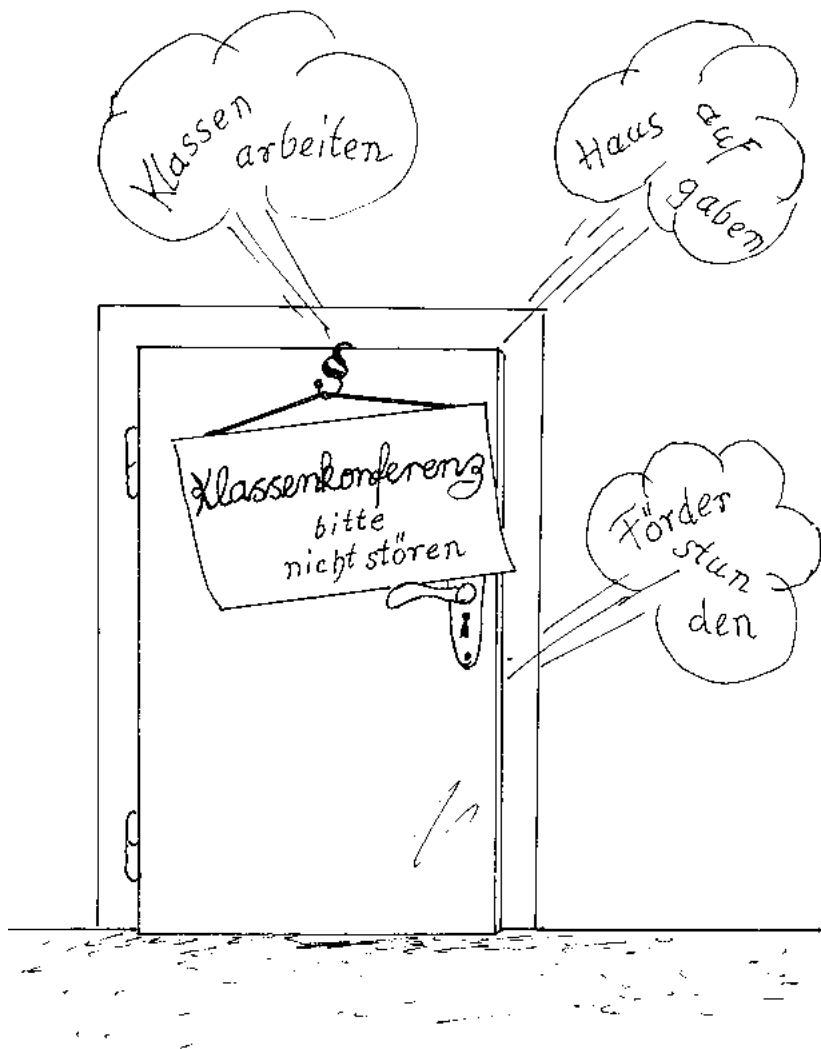 Klassen
arbeiten
Haus auf
gaben
Klassenkonferenz
bitte
nicht stören
Förder
stun
den